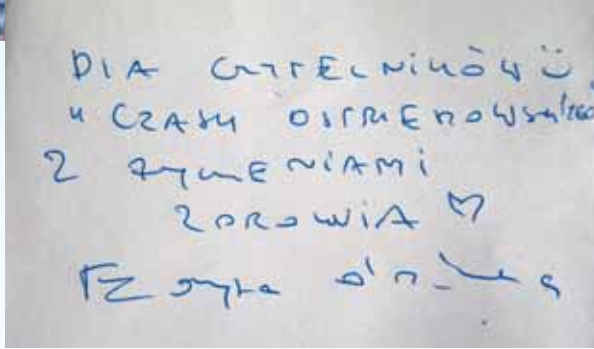 DLA CZYTELNIKÓW
"CZASU OSTRZESZOWSKIEGO
Z ŻYCZENIAMI
ZDROWIA